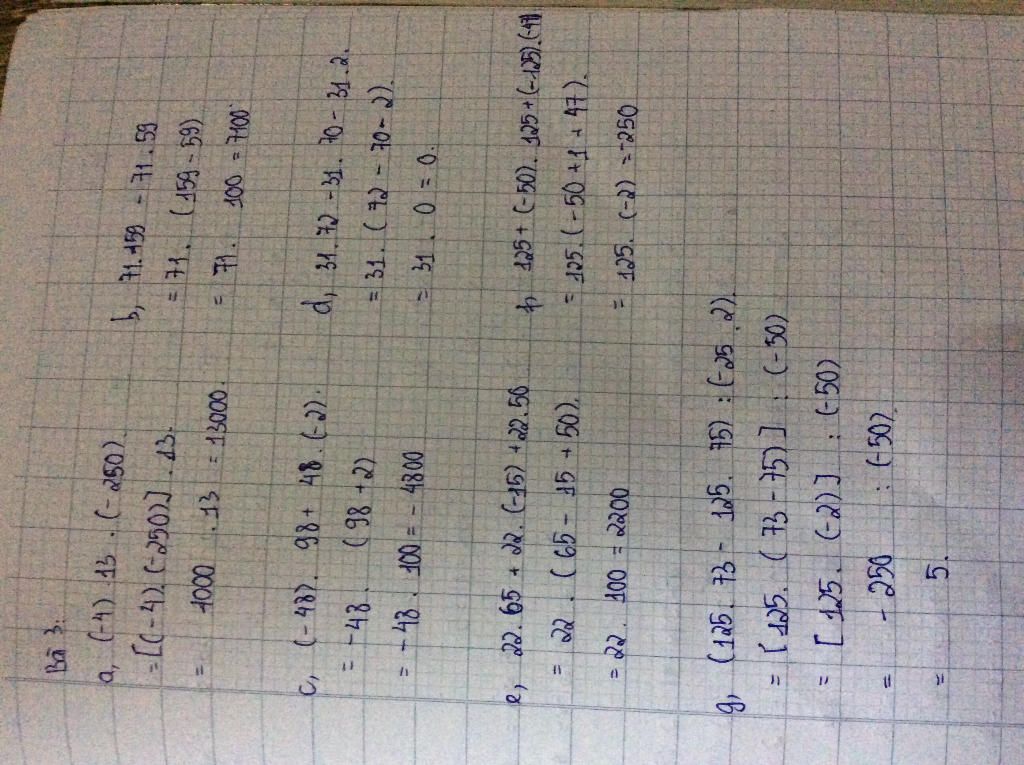 Bà 3:
a, (-4) . 13 . (-250)
= [(-4).(-250)] . 13.
= 1000 . 13 = 13000.
b, 71.159 - 71.59
= 71. (159 - 59)
= 71. 100 = 7100
c, (-48). 98 + 48.(-2).
= -48. (98 + 2)
= -48. 100 = -4800
d, 31.72 - 31.70 - 31.2.
= 31.(72 - 70 - 2).
= 31. 0 = 0.
e, 22.65 + 22.(-15) + 22.50
= 22.(65 - 15 + 50).
= 22. 100 = 2200
f, 125 + (-50). 125 + (-125).(-47)
= 125.(-50 + 1 + 47).
= 125. (-2) = -250
g, (125. 73 - 125. 75) : (-25.2).
= [125. (73 - 75)] : (-50)
= [125. (-2)] : (-50)
= -250 : (-50).
= 5.